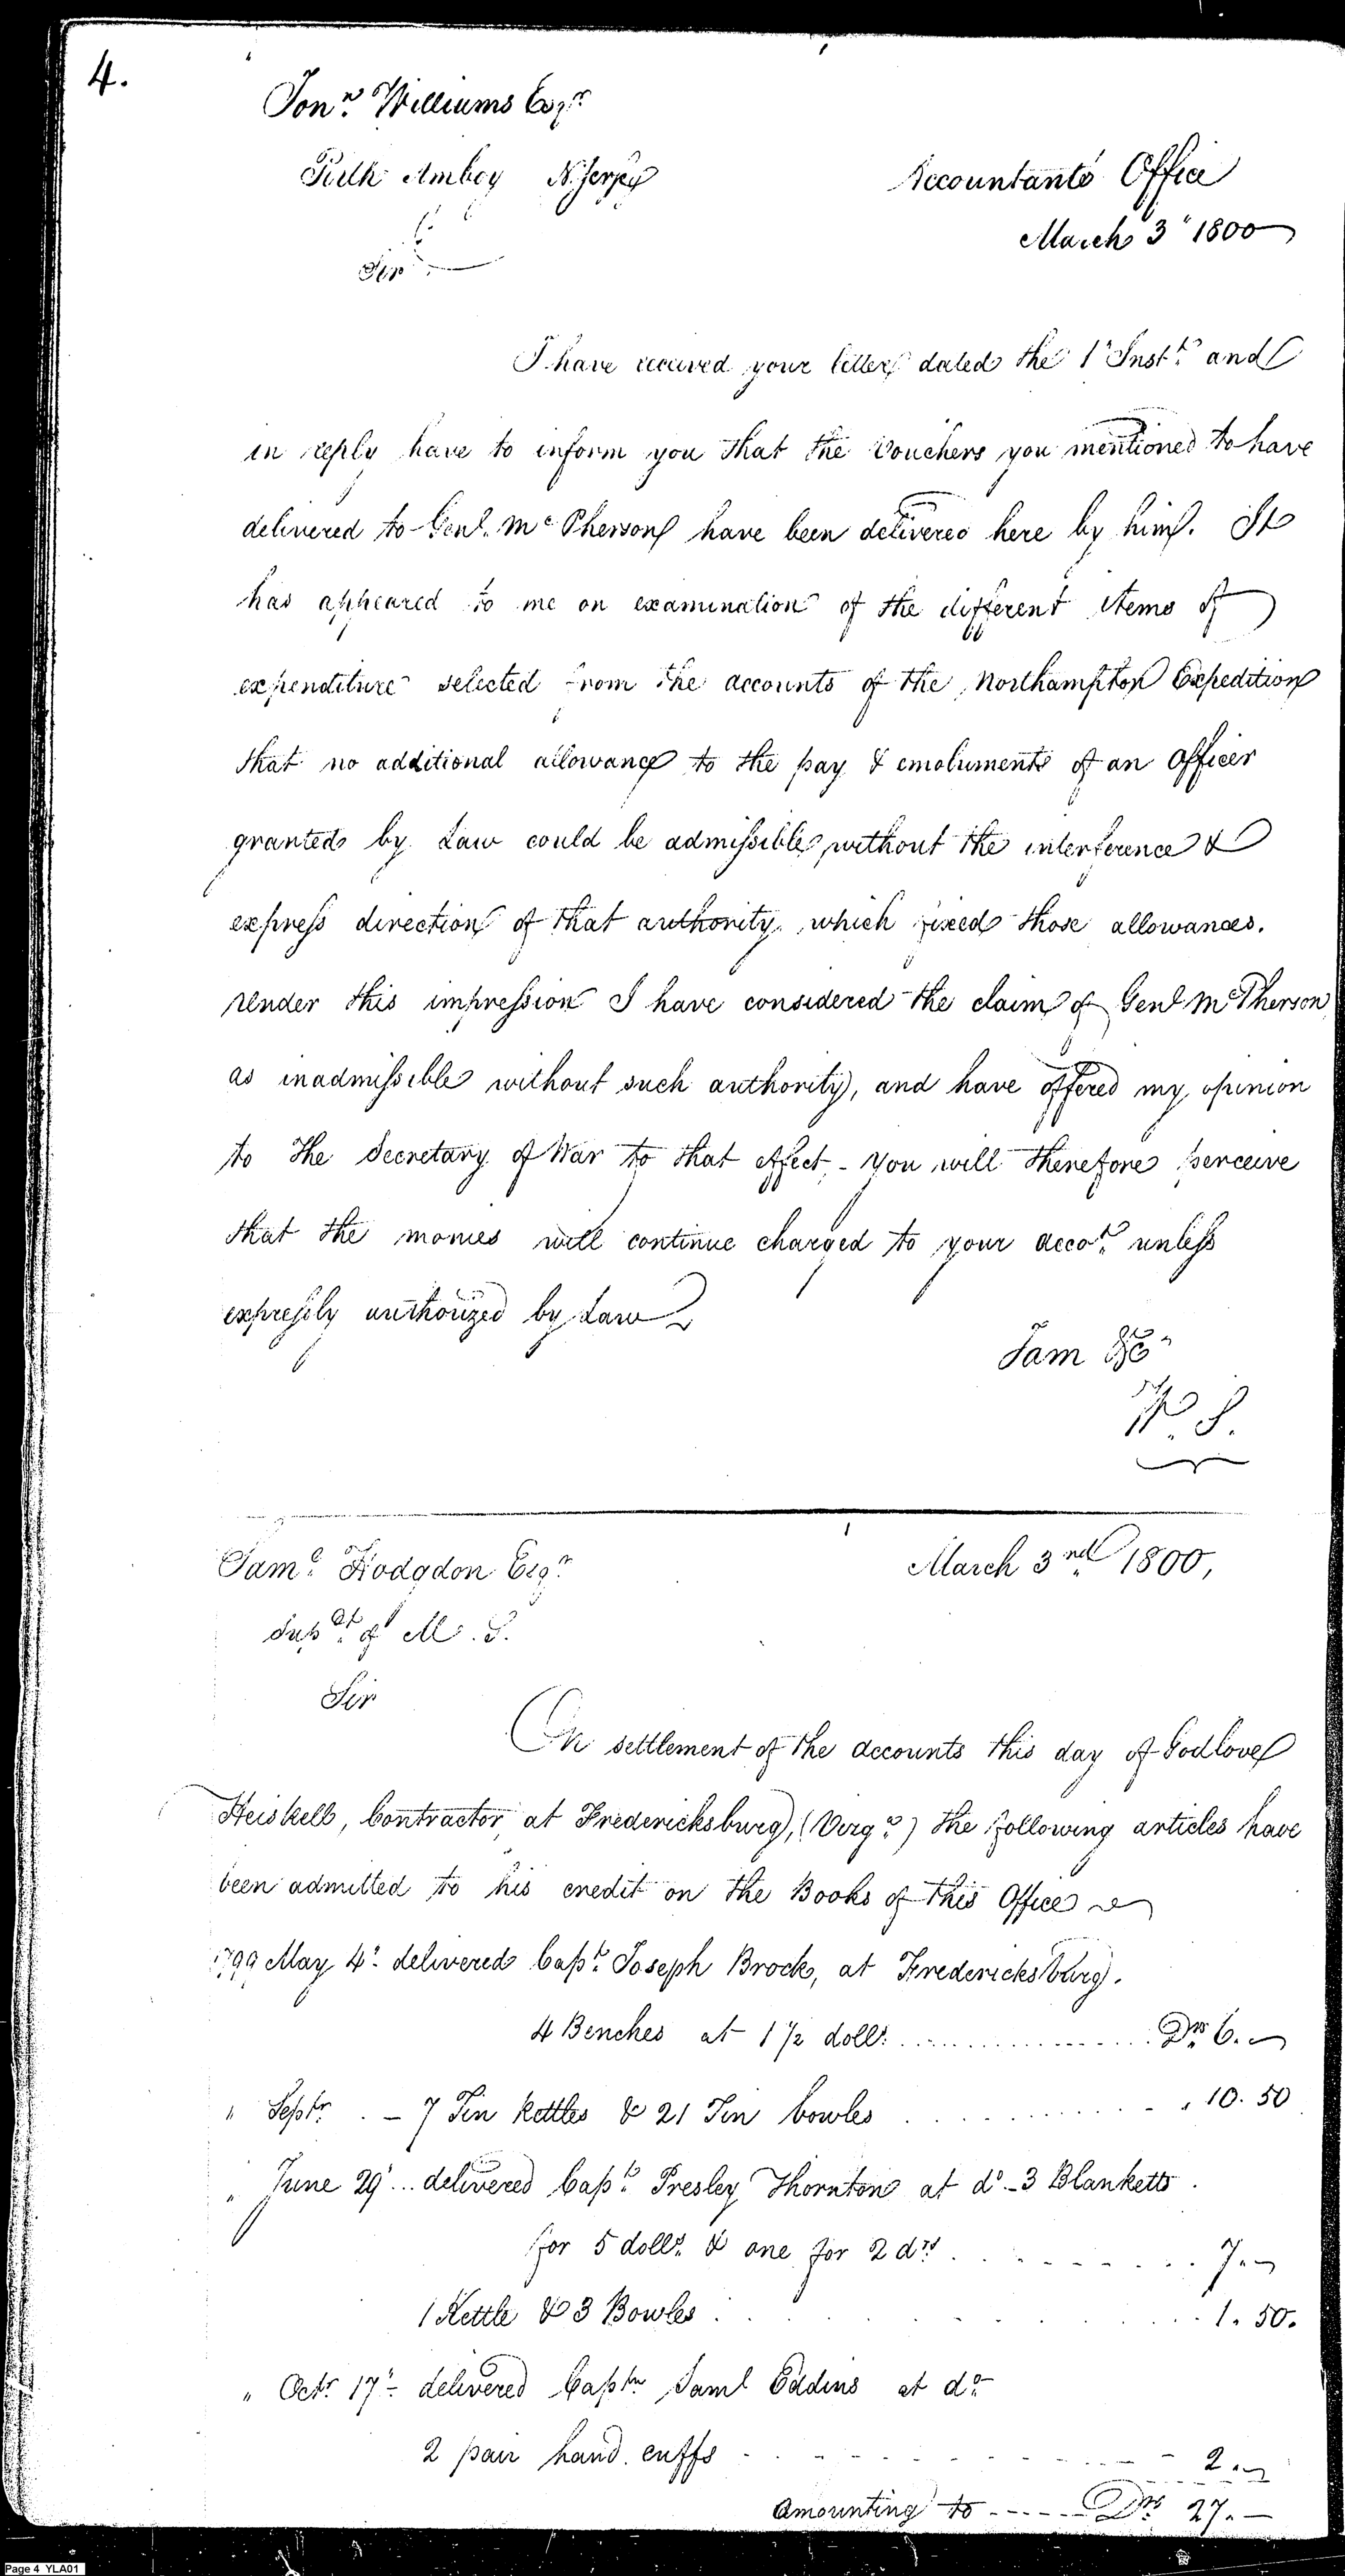 4.
Jonn. Williams Esqr
Perth Amboy N. Jersey
Accountants Office
March 3" 1800
Sir
I have received your letter dated the 1" Instt. and
in reply have to inform you that the Vouchers you mentioned to have
delivered to Genl. Mc Pherson have been delivered here by him. It
has appeared to me on examination of the different items of
expenditure selected from the accounts of the Northampton Expedition
that no additional allowance to the pay & emoluments of an Officer
granted by Law could be admissible without the interference &
express direction of that authority which fixed those allowances.
Under this impression I have considered the claim of Genl McPherson
as inadmissible without such authority, and have offered my opinion
to the Secretary of War to that effect - You will therefore perceive
that the monies will continue charged to your accot. unless
expressly authorized by Law
I am &c
W. S.
Saml. Hodgdon Esqr.
Supdt. of M. S.
March 3rd 1800,
Sir
On settlement of the accounts this day of Godlove
Heiskell, Contractor at Fredericksburg, (Virga.) the following articles have
been admitted to his credit on the Books of this Office
1799 May 4". delivered Capt. Joseph Brock, at Fredericksburg.
4 Benches at 1 1/2 dolls. Drs. 6.
" Septr. - 7 Tin kettles & 21 Tin bowles " 10.50
" June 29" ... delivered Capt. Presley Thornton at do - 3 Blanketts
for 5 dolls. & one for 2 drs. 7.
1 Kettle & 3 Bowles 1.50.
" Octr. 17" - delivered Captn Saml Eddins at do.
2 pair hand cuffs 2.
Amounting to ----- Drs 27. -
Page 4 YLA01